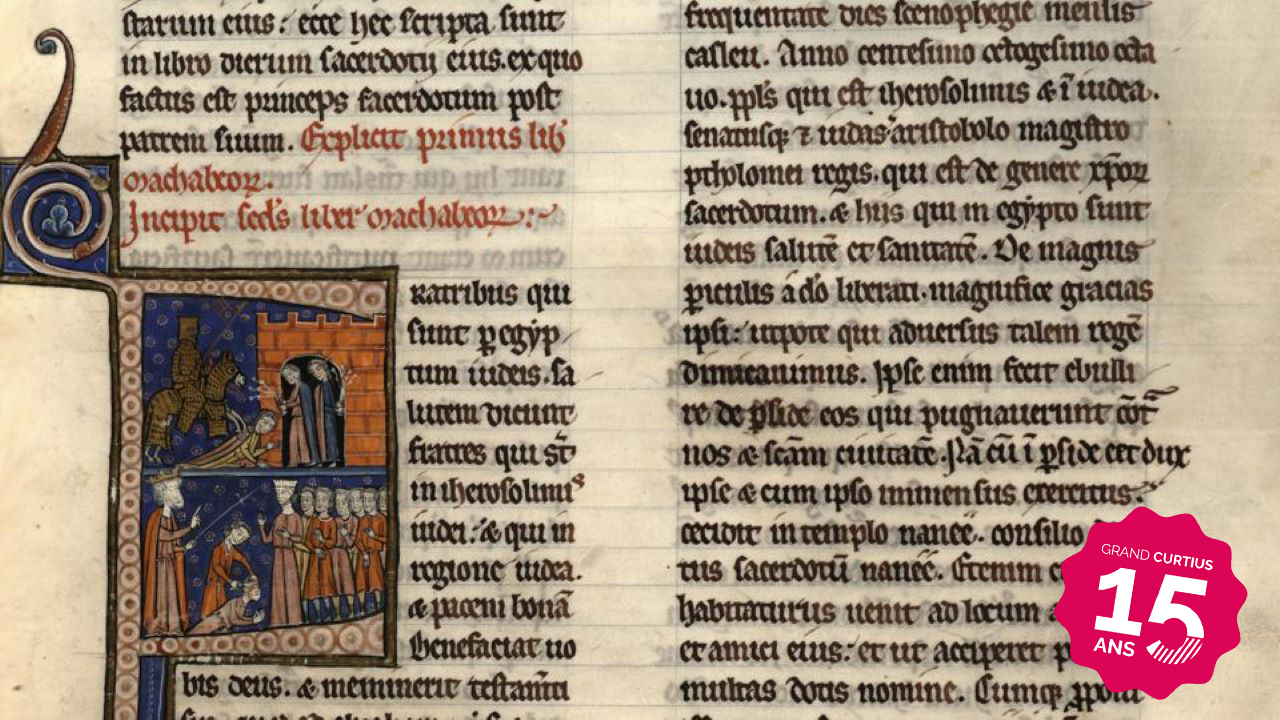 starum eius: ecce hec scripta sunt
in libro dierum sacerdotij eius. ex quo
factus est princeps sacerdotum post
patrem suum. Explicit primus lib'
Machabeoꝝ.
Incipit scd's liber machabeoꝝ:~
ratribus qui
sunt ꝑ egyp
tum iudeis. sa
lutem dicunt
fratres qui st̄
in iherosolimis
iudei: & qui in
regione iudea.
& pacem bonā
Benefaciat uo
bis deus. & meminerit testam̄ti
frequentate dies scenophegie mensis
casleu. Anno centesimo octogesimo octa
uo. ppl's qui est iherosolimis & ī iudea.
senatusqꝫ ⁊ iudas aristobolo magistro
ptholomei regis. qui est de genere xp̄oꝝ
sacerdotum. & hiis qui in egypto sunt
iudeis salutē et sanitatē. De magnis
ꝑiculis a dō liberati. magnifice gracias
ipsi: utpote qui aduersus talem regē
dimicauimus. Ipse enim fecit ebulli
re de ꝑside eos qui pugnauerunt cōt̄
nos & sc̄am ciuitatē. Nā cū ī ꝑside eet dux
ipse & cum ipso immensus exercitus.
cecidit in templo naneē. consilio
tus sacerdotū naneē. Etenim c
habitaturus uenit ad locum a
et amici eius: et ut acciperet p
multas dotis nomine. Cumqꝫ
GRAND CURTIUS
15
ANS